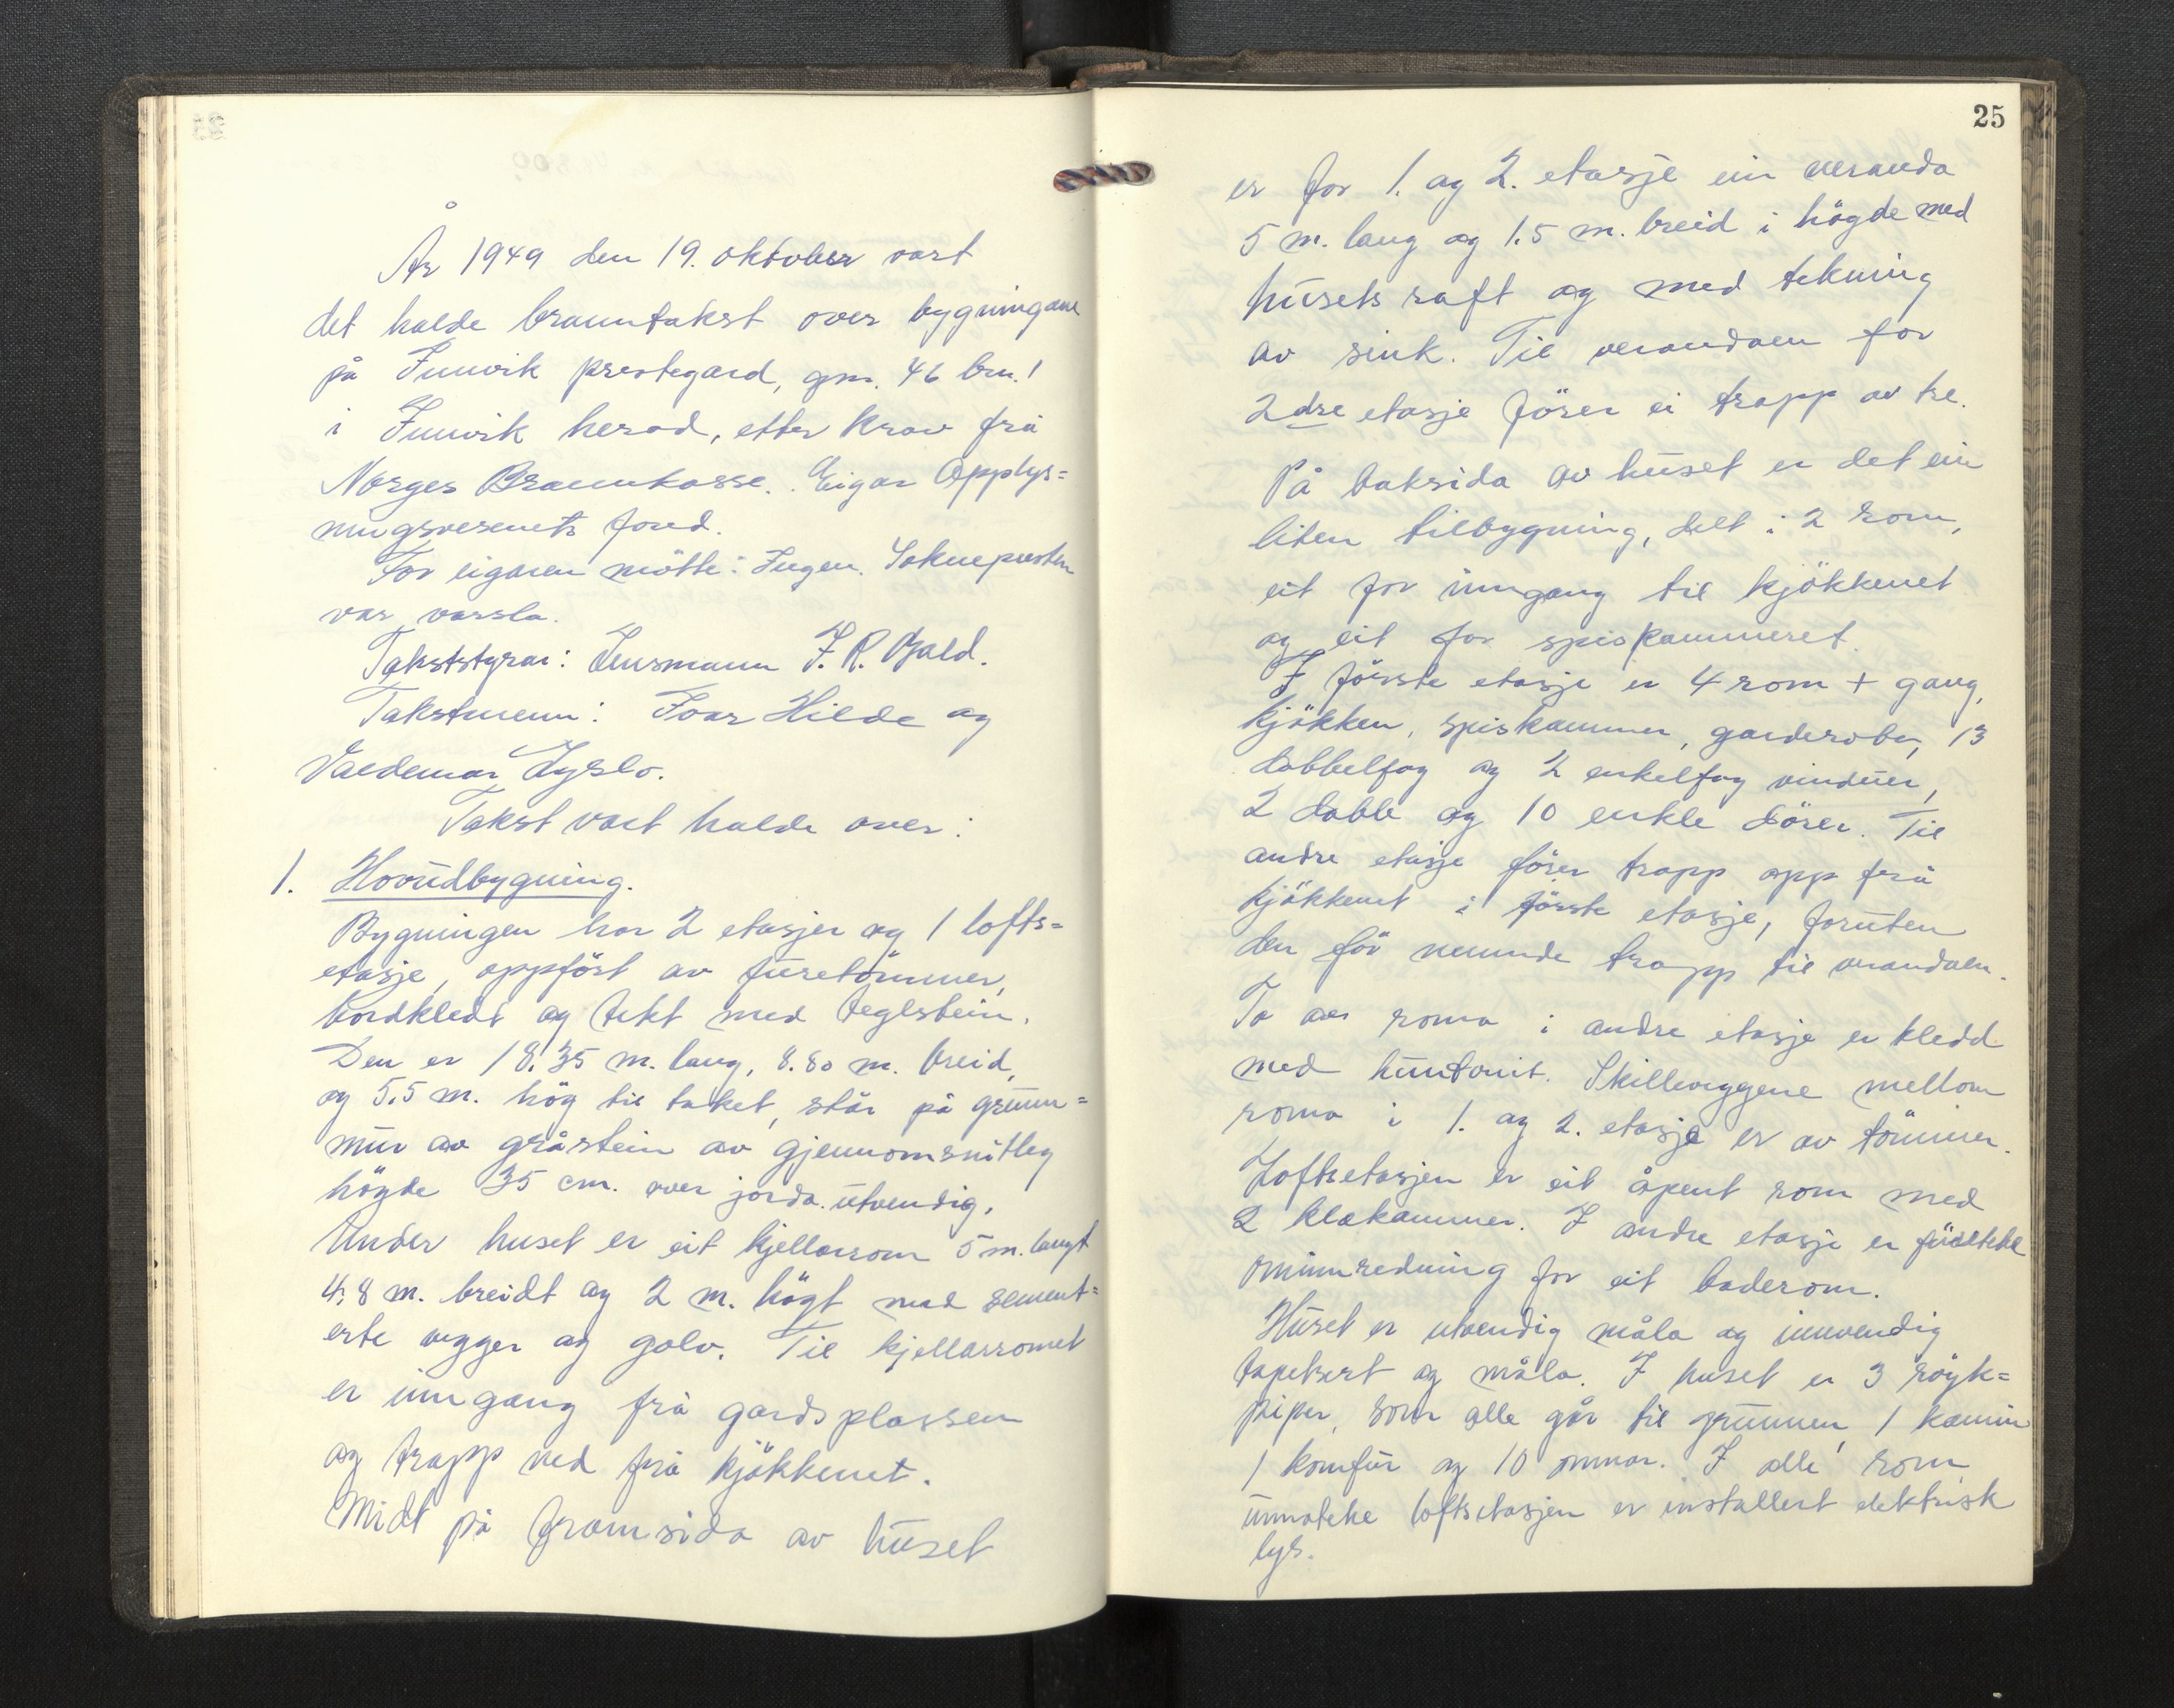 År 1949 den 19. oktober vart
det halde branntakst over bygningane
på Innvik prestegard, gnr. 46 brn. 1
i Innvik herad, etter krav frå
Norges Brannkasse. Eigar Opplys=
ningsvesenets fond.
For eigaren mötte: Ingen. Soknepresten
var varsla.
Takststyrar: Lensmann J. R. Bald.
Takstmenn: Ivar Hilde og
Valdemar Lyslo.
Takst vart halde over:
1. Hovudbygning.
Bygningen har 2 etasjer og 1 lofts=
etasje, oppfört av furetömmer,
bordkledt og tekt med teglstein.
Den er 18.35 m. lang, 8.80 m. breid,
og 5.5 m. hög til taket, står på grunn=
mur av gråstein av gjennomsnitleg
högde 35 cm. over jorda utvendig.
Under huset er eit kjellarrom 5 m. langt
4.8 m. breidt og 2 m. högt med sement=
erte vegger og golv. Til kjellarromet
er inngang frå gardsplassen
og trapp ned frå kjökkenet.
Midt på framsida av huset
25
er for 1. og 2. etasje ein veranda
5 m. lang og 1.5 m. breid i högde med
husets raft og med tekning
av sink. Til verandaen for
2dre etasje förer ei trapp av tre.
På baksida av huset er det ein
liten tilbygning, delt i 2 rom,
eit for inngang til kjökkenet
og eit for spiskammeret.
I förste etasje er 4 rom + gang,
kjökken, spiskammer, garderobe, 13
dobbelfag og 2 enkelfag vinduer,
2 doble og 10 enkle dörer. Til
andre etasje förer trapp opp frå
kjökkenet i förste etasje, foruten
den för nemnde trapp til verandaen.
To av roma i andre etasje er kledd
med huntonit. Skilleveggene mellom
roma i 1. og 2. etasje er av tömmer.
Loftsetasjen er eit åpent rom med
2 klekammer. I andre etasje er
ominnredning for eit baderom.
Huset er utvendig måla og innvendig
tapetsert og måla. I huset er 3 röyk=
piper, som alle går til grunnen, 1 kamin
1 komfur og 10 omnar. I alle rom
unnateke loftsetasjen er installert elektrisk
lys.